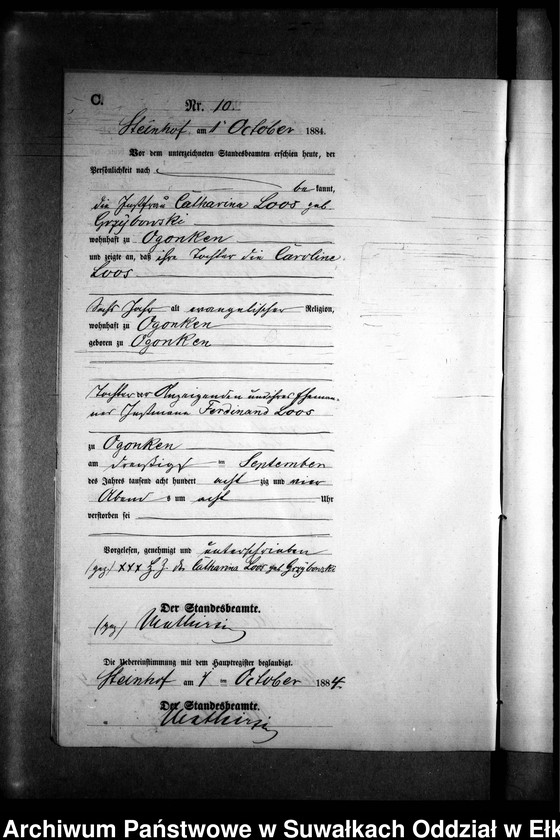 C.
Nr. 10.
Steinhof am 1t October 1884.
Vor dem unterzeichneten Standesbeamten erschien heute, der
Persönlichkeit nach
be kannt,
die Instfrau Catharina Loos geb
Grzybowski
wohnhaft zu Ogonken
und zeigte an, daß ihre Tochter die Caroline
Loos
Sechs Jahr alt evangelischer Religion,
wohnhaft zu Ogonken
geboren zu Ogonken
Tochter der Anzeigenden und ihres Eheman-
nes Instmann Ferdinand Loos
zu Ogonken
am dreißigs ten September
des Jahres tausend acht hundert acht zig und vier
Abend s um acht Uhr
verstorben sei
Vorgelesen, genehmigt und unterschrieben
(gez) XXX H. Z. der Catharina Loos geb Grzybowski
Der Standesbeamte.
(gez)
Die Uebereinstimmung mit dem Hauptregister beglaubigt.
Steinhof am 1 ten October 1884.
Der Standesbeamte.
Archiwum Państwowe w Suwałkach Oddział w Ełk